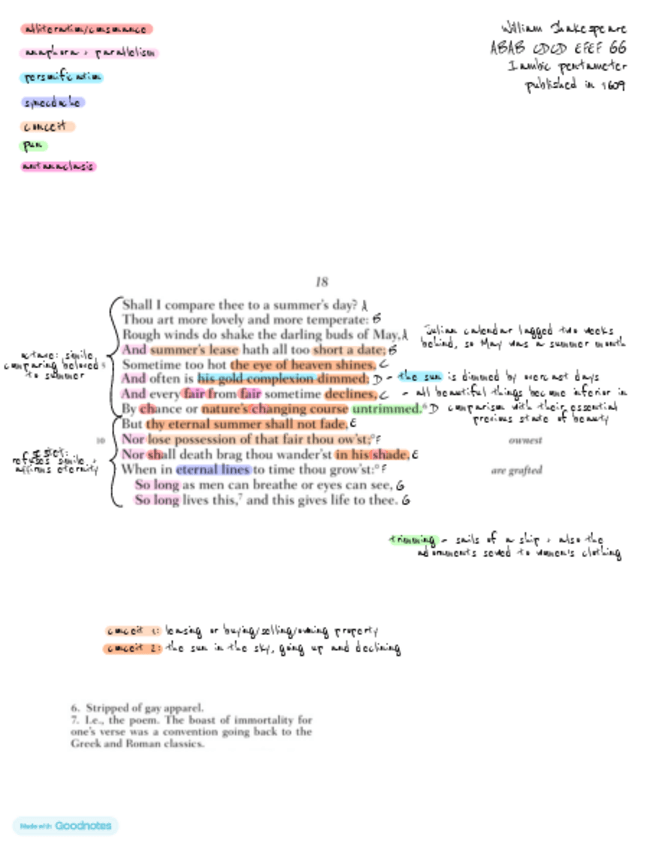 alliteration/consonance
anaphora + parallelism
personification
synecdoche
conceit
pun
antanaclasis
William Shakespeare
ABAB CDCD EFEF GG
Iambic pentameter
published in 1609
18
Shall I compare thee to a summer's day? A
Thou art more lovely and more temperate: B
Rough winds do shake the darling buds of May, A
And summer's lease hath all too short a date; B
Sometime too hot the eye of heaven shines, C
And often is his gold complexion dimmed; D
And every fair from fair sometime declines, C
By chance or nature's changing course untrimmed.⁶ D
But thy eternal summer shall not fade, E
10 Nor lose possession of that fair thou ow'st;° F
Nor shall death brag thou wander'st in his shade, E
When in eternal lines to time thou grow'st:° F
So long as men can breathe or eyes can see, G
So long lives this,⁷ and this gives life to thee. G
octave: simile,
comparing beloved 5
to summer
sestet:
refuses simile,
affirms eternity
Julian calendar lagged two weeks
behind, so May was a summer month
- the sun is dimmed by overcast days
- all beautiful things become inferior in
comparison with their essential
previous state of beauty
ownest
are grafted
trimming - sails of a ship + also the
adornments sewed to women's clothing
conceit 1: leasing or buying/selling/owning property
conceit 2: the sun in the sky, going up and declining
6. Stripped of gay apparel.
7. I.e., the poem. The boast of immortality for
one's verse was a convention going back to the
Greek and Roman classics.
Made with Goodnotes